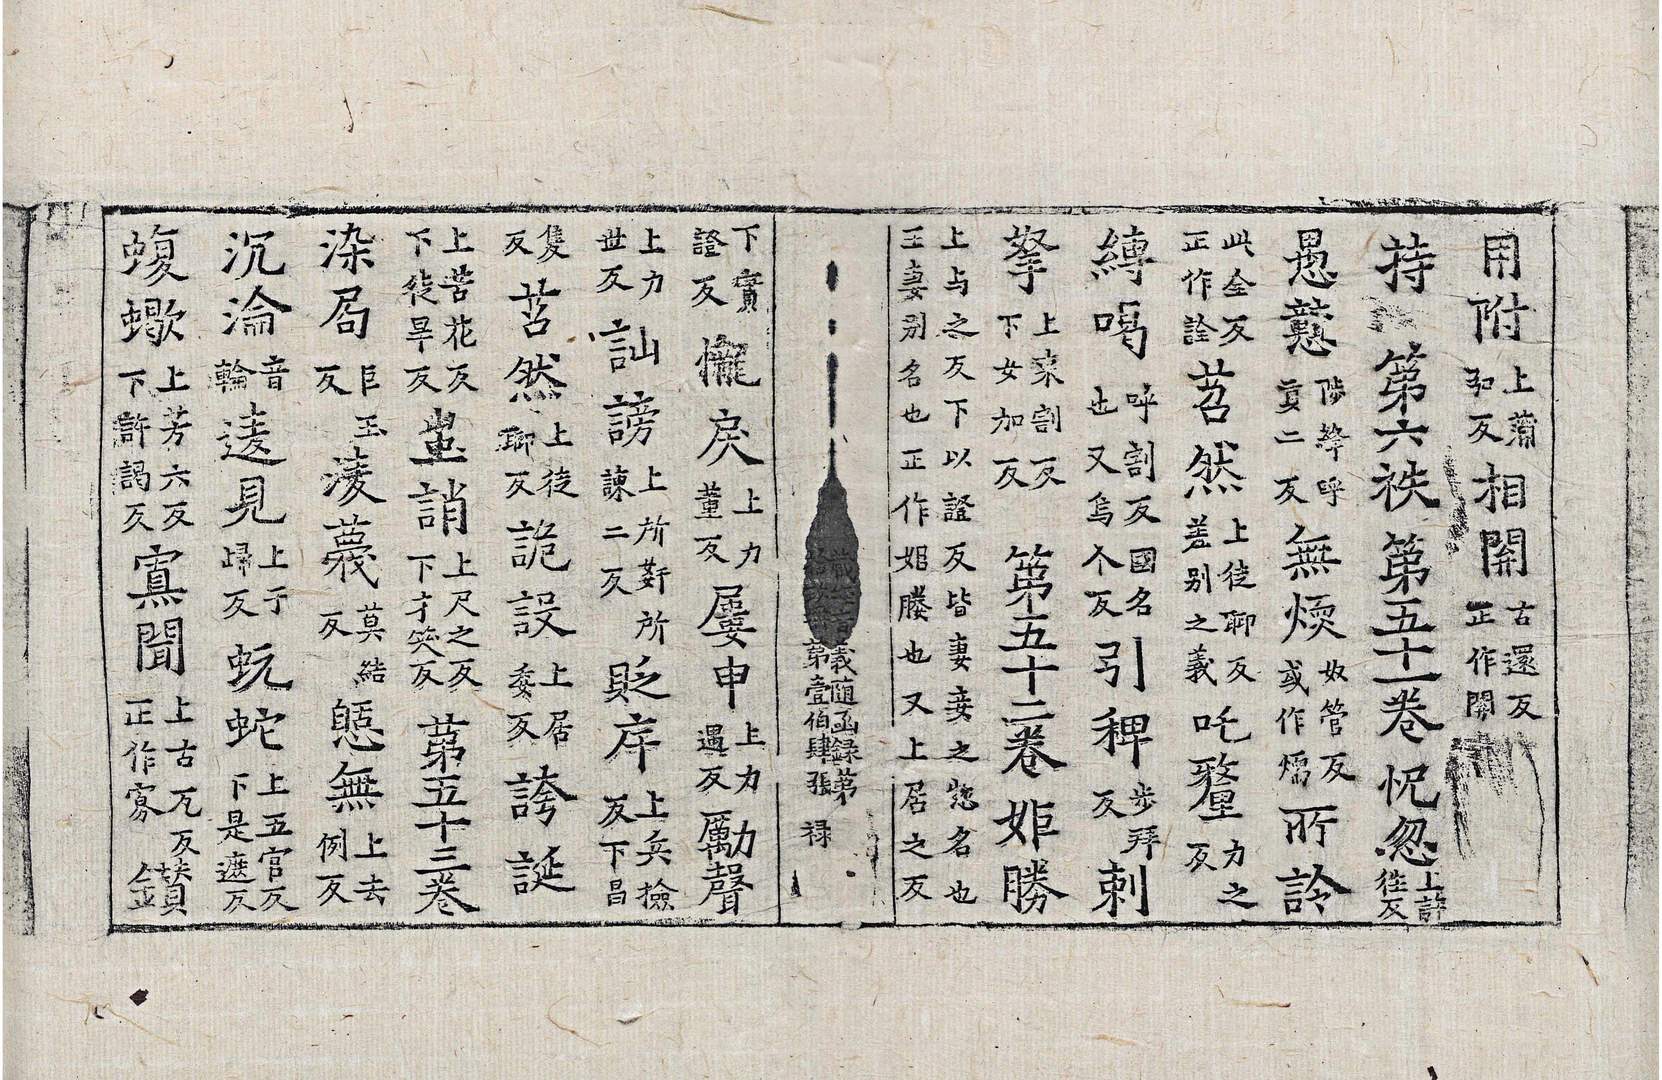 用附上蕭
弘反相關古還反
正作關
持 第六袟第五十一卷怳忽上許
往反
愚戇陟絳呼
貢二反無煗奴管反
或作㬉所詅
此全反
正作詮苕然上徒聊反
差别之義吒𠩺力之
反
縛喝呼割反國名
也又烏个反引稗步拜
反刺
拏上来割反
下女加反 第五十二卷 姖勝
上与之反下以證反皆妻妾之惣名也
王妻别名也正作姖媵也又上居之反
藏經音義随函録第
第壹伯肆張 禄
下實
證反㦬戾上力
董反屢申上力
遇反勵聲
上力
世反訕謗上所姧所
諫二反貶斥上兵撿
反下昌
隻
反苕然上徒
聊反詭設上居
委反誇誕
上苦花反
下徒旱反蚩誚上尺之反
下才笑反 第五十三卷
染局巨玉
反凌蔑莫結
反𠎝無上去
例反
沉淪音
輪逵見上于
歸反蚖蛇上五官反
下是遮反
蝮蠍上芳六反
下許謁反寡聞上古瓦反
正作寡鑚